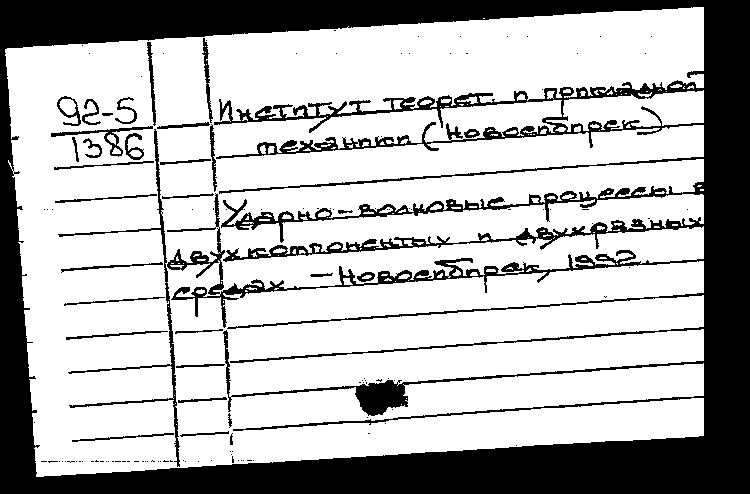 92-5
1386
Институт теорет. и прикладной
механики (Новосибирск)
Ударно-волновые процессы в
двухкомпонентных и двухфазных
средах. – Новосибирск, 1992.